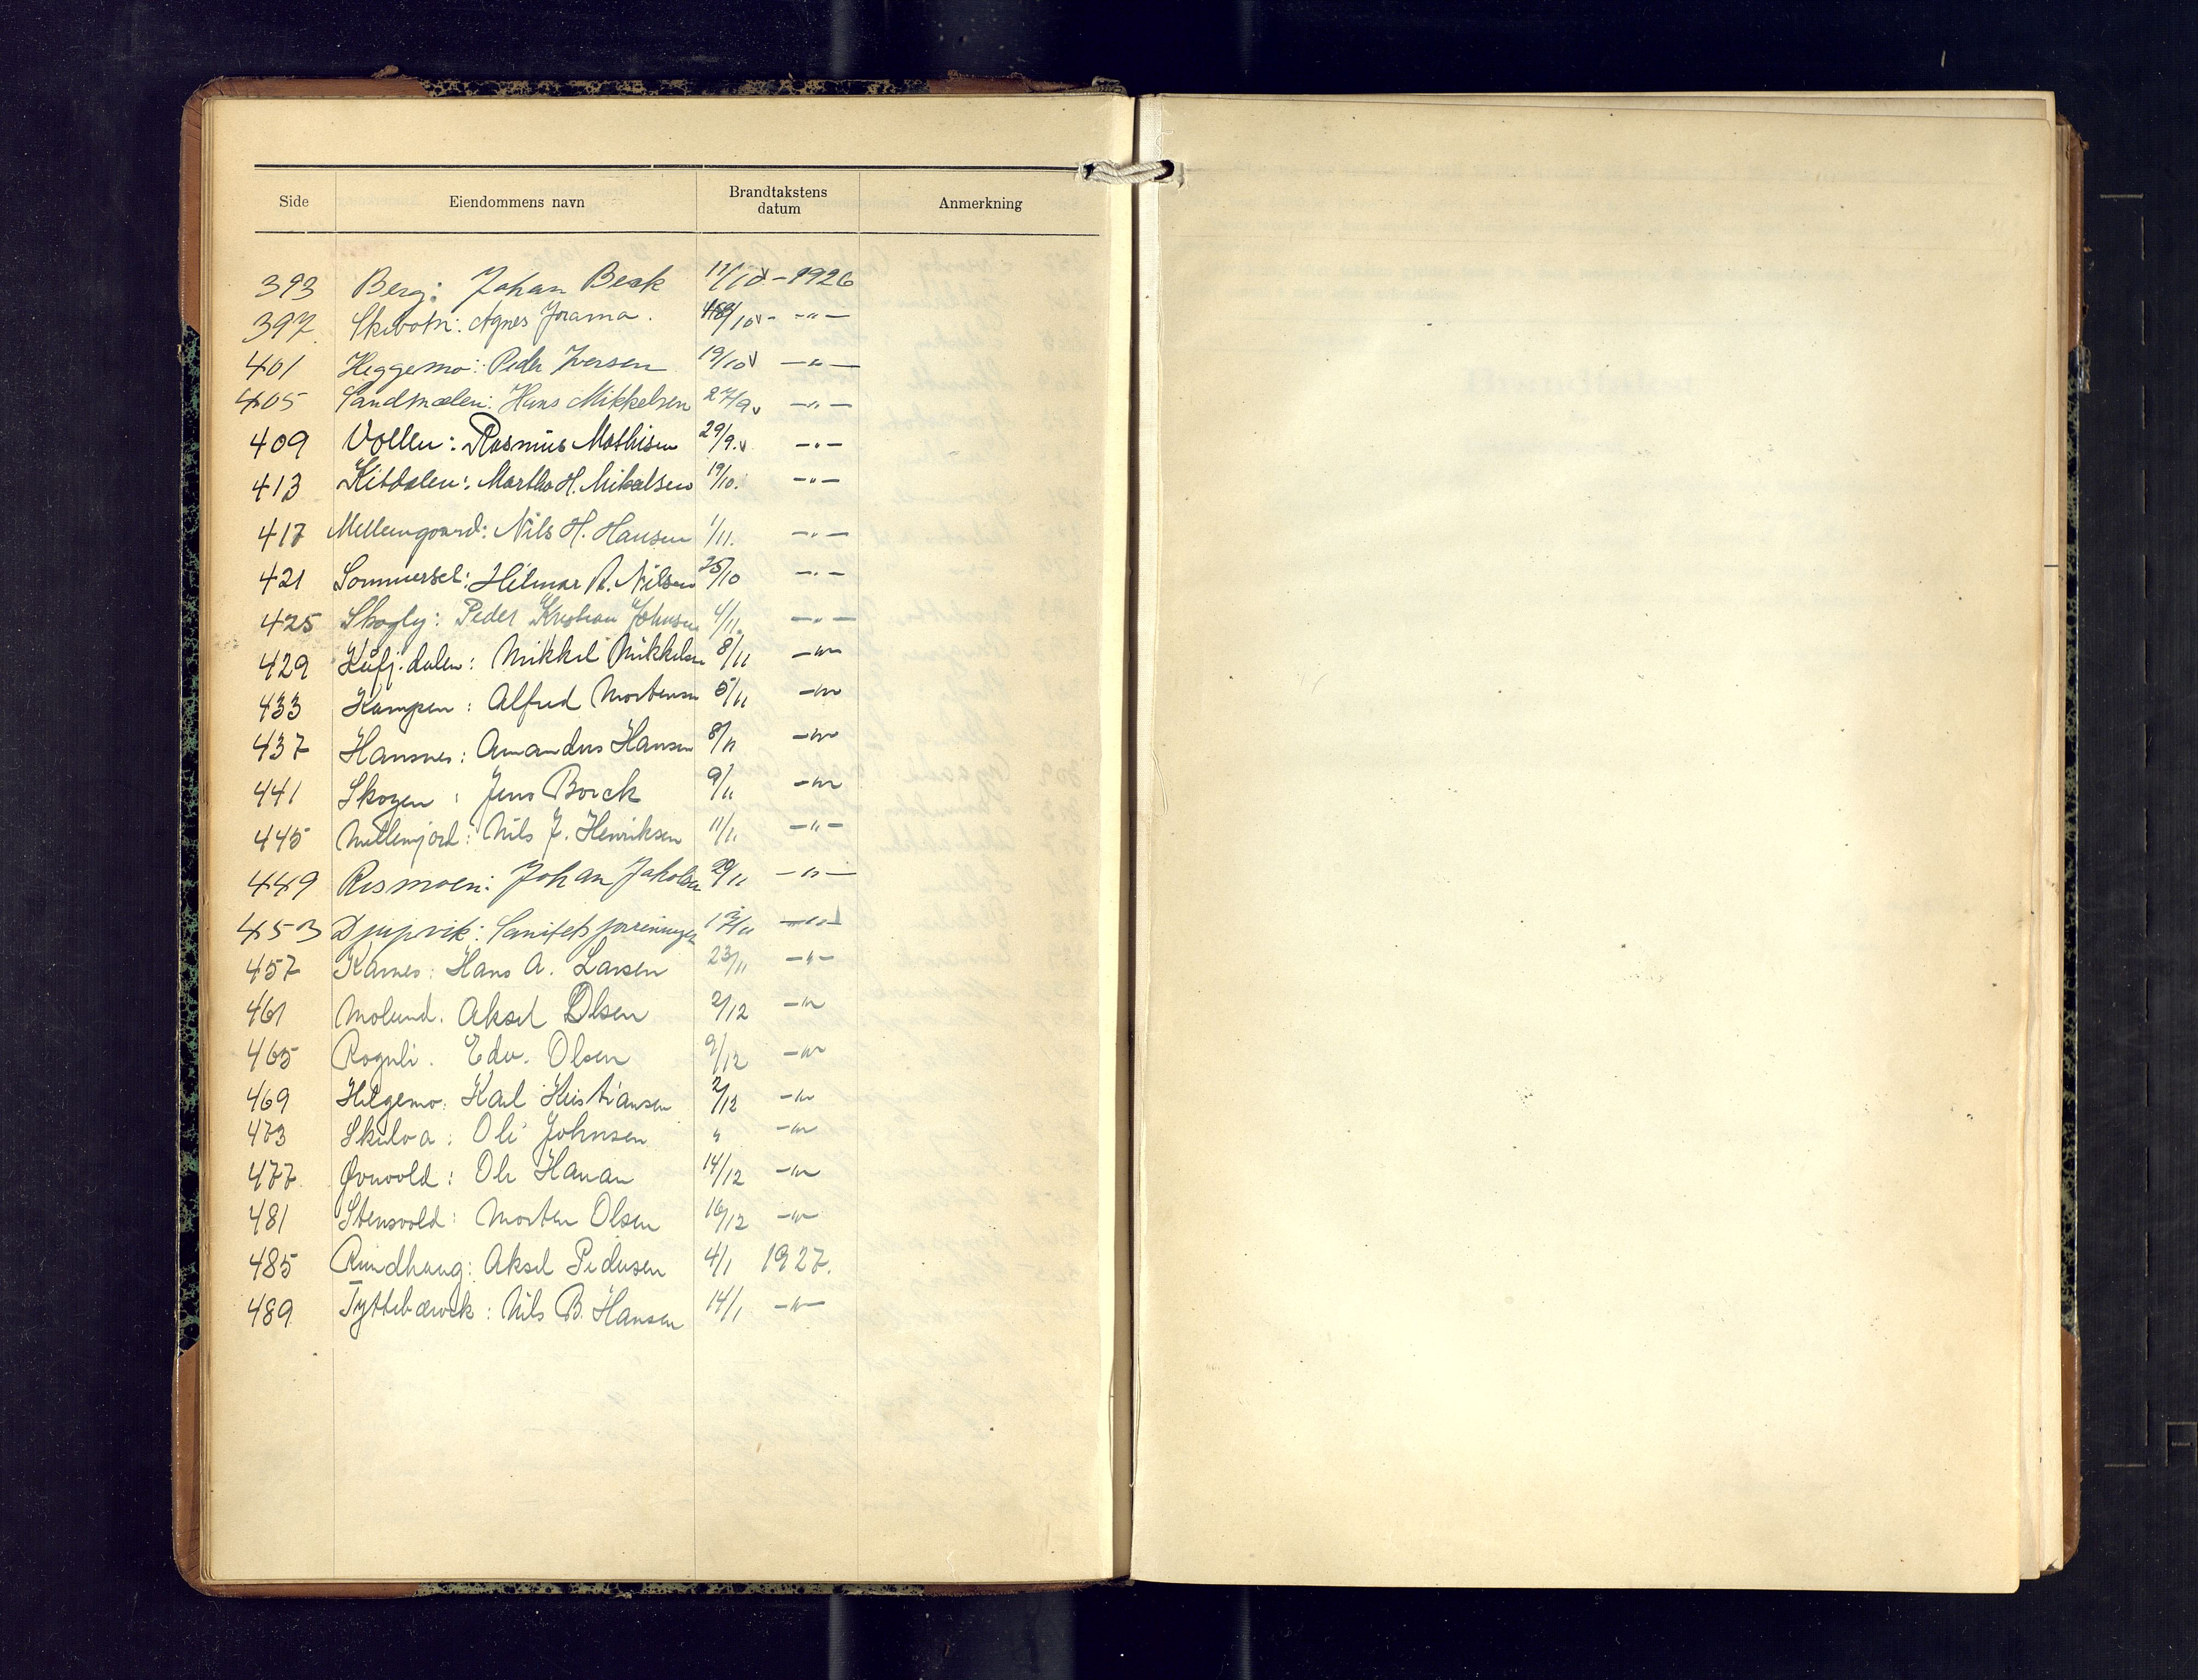 Side Eiendommens navn Brandtakstens datum Anmerkning
393 Berg: Johan Beck 17/10 v - 1926
397 Skibotn: Agnes Jorama. 18/10 v - -"-
401 Heggemo: Peder Iversen 19/10 v -"-
405 Sandmælen: Hans Mikkelsen 27/9 v -"-
409 Vollen: Rasmus Mathisen 29/9. v -"-
413 Kitdalen: Martha H. Mikalsen 19/10. -"-
417 Mellemgaard: Nils H. Hansen 1/11. -"-
421 Sommersel: Hilmar R. Nilsen 25/10 -"-
425 Skogly: Peder Kristian Johnsen 4/11. -"-
429 Kåfj.dalen: Mikkel Mikkelsen 8/11 -"-
433 Kampen: Alfred Mortensen 5/11 -"-
437 Hansnes: Amandus Hansen 8/11 -"-
441 Skogen: Jens Borck 9/11 -"-
445 Mellemjord: Nils J. Henriksen 11/11 -"-
449 Rismoen: Johan Jakobsen 29/11 -"-
453 Djupvik: Sanitetsforeningen -"-
457 Karnes: Hans A. Larsen 23/11 -"-
461 Molund. Aksel Olsen 2/12 -"-
465 Rognli. Edv. Olsen 9/12 -"-
469 Helgemo: Karl Kristiansen 2/12 -"-
473 Skilva: Ole Johnsen " -"-
477 Øvervold: Ole Hanan 14/12 -"-
481 Stensvold: Morten Olsen 16/12 -"-
485 Rundhaug: Aksel Pedersen 4/1 1927.
489 Tyttebærvik: Nils B. Hansen 14/1 -"-